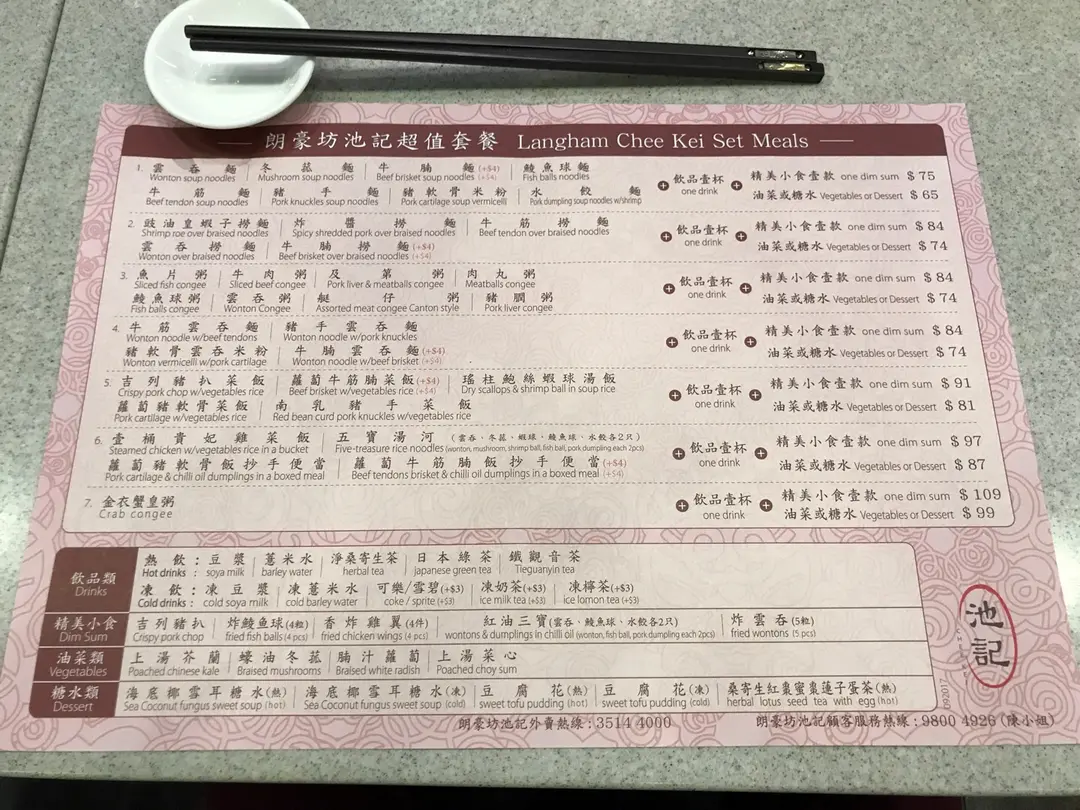 朗豪坊池記超值套餐 Langham Chee Kei Set Meals
1. 雲吞麵 冬菇麵 牛腩麵(+$4) 鯪魚球麵
Wonton soup noodles Mushroom soup noodles Beef brisket soup noodles (+$4) Fish balls noodles
牛筋麵 豬手麵 豬軟骨米粉 水餃麵
Beef tendon soup noodles Pork knuckles soup noodles Pork cartilage soup vermicelli Pork dumpling soup noodles w/shrimp
+ 飲品壹杯 one drink + 精美小食壹款 one dim sum $ 75
油菜或糖水 Vegetables or Dessert $ 65
2. 豉油皇蝦子撈麵 炸醬撈麵 牛筋撈麵
Shrimp roe over braised noodles Spicy shredded pork over braised noodles Beef tendon over braised noodles
雲吞撈麵 牛腩撈麵(+$4)
Wonton over braised noodles Beef brisket over braised noodles (+$4)
+ 飲品壹杯 one drink + 精美小食壹款 one dim sum $ 84
油菜或糖水 Vegetables or Dessert $ 74
3. 魚片粥 牛肉粥 及第粥 肉丸粥
Sliced fish congee Sliced beef congee Pork liver & meatballs congee Meatballs congee
鯪魚球粥 雲吞粥 艇仔粥 豬膶粥
Fish balls congee Wonton Congee Assorted meat congee Canton style Pork liver congee
+ 飲品壹杯 one drink + 精美小食壹款 one dim sum $ 84
油菜或糖水 Vegetables or Dessert $ 74
4. 牛筋雲吞麵 豬手雲吞麵
Wonton noodle w/beef tendons Wonton noodle w/pork knuckles
豬軟骨雲吞米粉 牛腩雲吞麵(+$4)
Wonton vermicelli w/pork cartilage Wonton noodle w/beef brisket (+$4)
+ 飲品壹杯 one drink + 精美小食壹款 one dim sum $ 84
油菜或糖水 Vegetables or Dessert $ 74
5. 吉列豬扒菜飯 蘿蔔牛筋腩菜飯(+$4) 瑤柱鮑絲蝦球湯飯
Crispy pork chop w/vegetables rice Beef brisket w/vegetables rice (+$4) Dry scallops & shrimp ball in soup rice
蘿蔔豬軟骨菜飯 南乳豬手菜飯
Pork cartilage w/vegetables rice Red bean curd pork knuckles w/vegetables rice
+ 飲品壹杯 one drink + 精美小食壹款 one dim sum $ 91
油菜或糖水 Vegetables or Dessert $ 81
6. 壹桶貴妃雞菜飯 五寶湯河 (雲吞、冬菇、蝦球、鯪魚球、水餃各2只)
Steamed chicken w/vegetables rice in a bucket Five-treasure rice noodles (wonton, mushroom, shrimp ball, fish ball, pork dumpling each 2pcs)
蘿蔔豬軟骨飯抄手便當 蘿蔔牛筋腩飯抄手便當(+$4)
Pork cartilage & chilli oil dumplings in a boxed meal Beef tendons brisket & chilli oil dumplings in a boxed meal (+$4)
+ 飲品壹杯 one drink + 精美小食壹款 one dim sum $ 97
油菜或糖水 Vegetables or Dessert $ 87
7. 金衣蟹皇粥
Crab congee
+ 飲品壹杯 one drink + 精美小食壹款 one dim sum $ 109
油菜或糖水 Vegetables or Dessert $ 99
飲品類 Drinks
熱飲：豆漿 薏米水 淨桑寄生茶 日本綠茶 鐵觀音茶
Hot drinks : soya milk barley water herbal tea japanese green tea Tieguanyin tea
凍飲：凍豆漿 凍薏米水 可樂/雪碧(+$3) 凍奶茶(+$3) 凍檸茶(+$3)
Cold drinks : cold soya milk cold barley water coke / sprite (+$3) ice milk tea (+$3) ice lomon tea (+$3)
精美小食 Dim Sum
吉列豬扒 炸鯪魚球(4粒) 香炸雞翼(4件) 紅油三寶(雲吞、鯪魚球、水餃各2只) 炸雲吞(5粒)
Crispy pork chop fried fish balls (4 pcs) fried chicken wings (4 pcs) wontons & dumplings in chilli oil (wonton, fish ball, pork dumpling each 2pcs) fried wontons (5 pcs)
油菜類 Vegetables
上湯芥蘭 蠔油冬菇 腩汁蘿蔔 上湯菜心
Poached chinese kale Braised mushrooms Braised white radish Poached choy sum
糖水類 Dessert
海底椰雪耳糖水(熱) 海底椰雪耳糖水(凍) 豆腐花(熱) 豆腐花(凍) 桑寄生紅棗蜜棗蓮子蛋茶(熱)
Sea Coconut fungus sweet soup (hot) Sea Coconut fungus sweet soup (cold) sweet tofu pudding (hot) sweet tofu pudding (cold) herbal lotus seed tea with egg (hot)
朗豪坊池記外賣熱線：3514 4000 朗豪坊池記顧客服務熱線：9800 4926 (陳小姐)
092017
池記